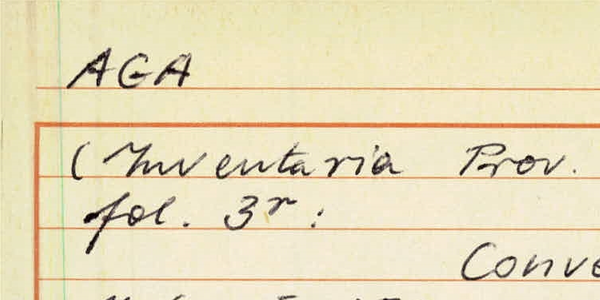 AGA
(Inventaria Prov.
fol. 3r: